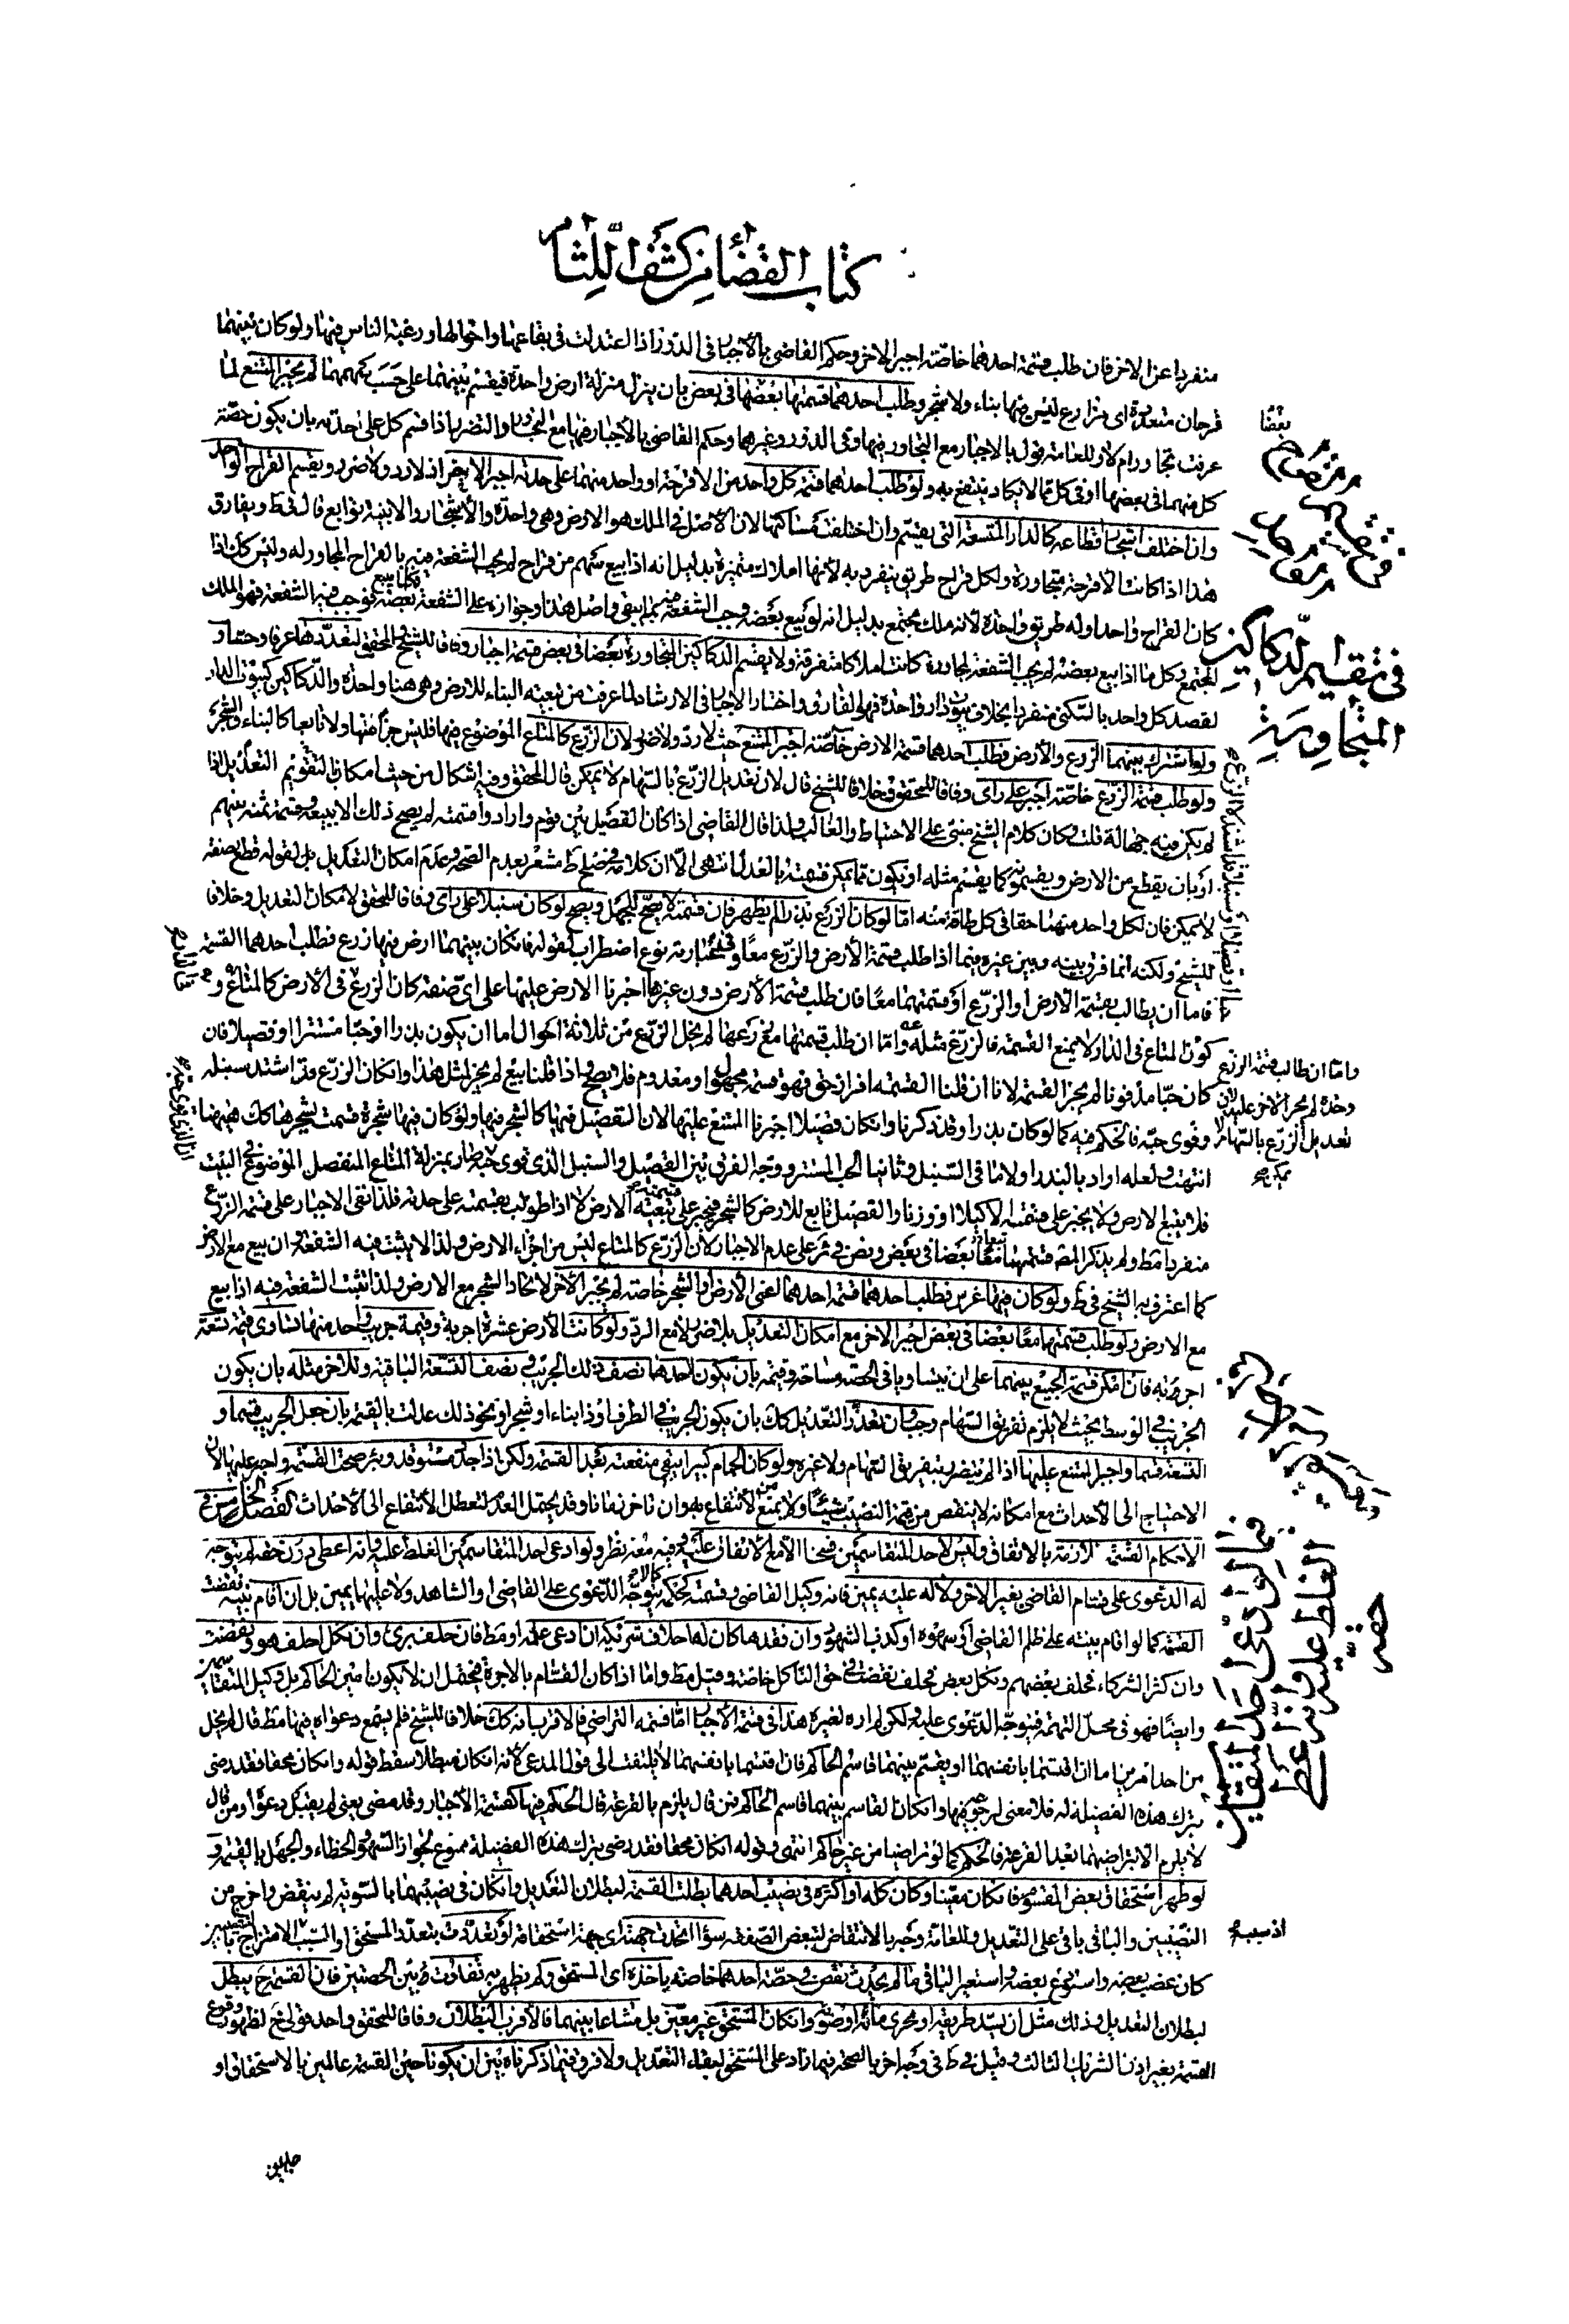 كتاب القضاء من كشف اللثام
منفردا عن الاخر فان طلب قسمة احدهما خاصة اجبر الاخر وحكم القاضى بالأجبار فى الدور اذا اعتدلت فى بقاعها واحوالها ورغبة الناس فيها ولو كان بينهما
قرحان متعددة اى مزارع ليس فيها بناء ولا شجر وطلب احدهما قسمتها بعضها فى بعض بان ينزل منزلة ارض واحدة فيقسم بينهما على حسب سهمهما لم يجبر الممتنع لما
عرفت تجاورا ام لا وللعامة قول بالاجبار مع التجاور فيها وفى الدور وغيرهما وحكم القاضى بالأجبار فيها مع التجاور والتضرر اذا قسم كل على حدته بان يكون حصة
كل منهما فى بعضها او فى كل مما لا يكاد ينتفع به ولو طلب احدهما قسمة كل واحد من الاقرحة او واحد منهما على حدته اجبر الاخر اذ لا رد ولا ضرر ويقسم القراح الواحد
وان اختلف اشجار اقطاعه كالدار المتسعة التى يقسم وان اختلفت مساكنها لان الأصل فى الملك هو الارض وهى واحدة والأشجار والابنية توابع قال فى ط ويفارق
هذا اذا كانت الاقرحة متجاورة ولكل قراح طريق ينفرد به لأنها املاك متميزة بدليل انه اذا بيع سهم من قراح لم يجب الشفعة فيه بالقراح المجاور له وليس كك اذا
كان القراح واحدا وله طريق واحدة لانه ملك مجتمع بدليل انه لو بيع بعضه وجب الشفعة فيما بقى واصل هذا وجوازه على الشفعة فكلما بيع بعضه فوجب فيه الشفعة فهو الملك
المجتمع وكل ما اذا بيع بعضه لم يجب الشفعة لمجاورة كانت املاكا متفرقة ولا يقسم الدكاكين المتجاورة بعضا فى بعض قسمة اجبار وفاقا للشيخ والمحقق لتعددها عرفا وحسا و
لقصد كل واحد بالسكنى منفردا بخلاف بيوت دار واحدة فهو الفارق واختار الاجبار فى الارشاد لما عرفت من تبعية البناء للارض وهى هنا واحدة والدكاكين كبيوت الدار
ولو اشترك بينهما الزرع والأرض فطلب احدهما قسمة الارض خاصة اجبر الممتنع حيث لا رد ولا ضرر لان الزرع كالمتاع الموضوع فيها فليس جزأ منها ولا تابعا كالبناء والشجر
ولو طلب قسمة الزرع خاصة اجبر على رأى وفاقا للمحقق وخلافا للشيخ قال لان تعديل الزرع بالسهام لا يمكن قال المحقق وفيه اشكال من حيث امكان التعديل بالتقويم اذا
لم يكن فيه جهالة قلت وكان كلام الشيخ مبنى على الاحتياط والغالب ولذا قال القاضى اذا كان القصيل بين قوم وارادوا قسمته لم يصح ذلك الا ببيعه وقسمة ثمنه بينهم
او بان يقطع من الارض ويقسمونه كما يقسم مثله او يكون مما يمكن قسمته بالعدل انتهى الا ان كلامه فى صلح ط مشعر بعدم الصحة وعدم امكان التعديل بل لقوله قطع نصفه
لا يمكن فان لكل واحد منهما حقا فى كل طاقة منه اما لو كان الزرع بذرا لم يظهر فان قسمته لا يصح للجهل ويصح لو كان سنبلا على رأى وفاقا للمحقق لامكان التعديل وخلافا
للشيخ ولكنه انما فرق بينه وبين غيره فيما اذا طلب قسمة الأرض والزرع معا وفى عبارته نوع اضطراب لقوله فان كان بينهما ارض فيها زرع فطلب احدهما القسمة
فاما ان يطالب بقسمة الارض او الزرع او قسمتهما معا فان طلب قسمة الأرض دون غيرها اجبرنا الاخر عليها على اى صفة كان الزرع فى الارض كالمتاع و
كون المتاع فى الدار لا يمنع القسمة فالزرع مثله واما ان طلب قسمتها مع زرعها لم يخل الزرع من ثلاثة احوال اما ان يكون بذرا او حبا مستترا او قصيلا فان
كان حبا مدفونا لم يجز القسمة لانا ان قلنا القسمة افراز حق فهو قسمة مجهول او معدوم فلا يصح واذا قلنا بيع لم يجز لمثل هذا وان كان الزرع قد اشتد سنبله
وقوى حبه فالحكم فيه كما لو كان بذرا وقد ذكرنا وان كان قصيلا اجبرنا الممتنع عليها لان القصيل فيها كالشجر فيها ولو كان فيها شجرة قسمت بشجرها كك هيهنا
انتهت ولعله اراد بالبذر اولا ما فى السنبل وثانيا الحب المستتر ووجه الفرق بين القصيل والسنبل الذى قوى حبه صار بمنزلة المتاع المنفصل الموضوع فى البيت
فلا يتبع الارض ولا يجبر على قسمته الا كيلا او وزنا والقصيل تابع للارض كالشجر فيجبر على قسمته بتبعيته الارض لا اذا طولب بقسمته على حدته فلذا نفى الاجبار على قسمة الزرع
منفردا مط ولم يذكر المص قسمتهما معا بعضا فى بعض ونص فى ئر على عدم الاجبار كأن الزرع كالمتاع ليس من اجزاء الارض ولذا لا يثبت فيه الشفعة وان بيع مع الارض
كما اعترف به الشيخ فى ط ولو كان فيها غرس فطلب احدهما قسمة احدهما اعنى الأرض او الشجر خاصة لم يجبر الأخر لاتحاد الشجر مع الارض ولذا تثبت الشفعة فيه اذا بيع
مع الارض ولو طلب قسمتهما معا بعضا فى بعض اجبر الاخر مع امكان التعديل بلا ضرر لا مع الرد ولو كانت الأرض عشرة اجربة وقيمة جريب واحد منها تساوى قيمة تسعة
اجربة فان امكن قسمة الجميع بينهما على ان يتساويا فى الحصة مساحة وقيمة بان يكون لاحدهما نصف ذلك الجريب فى نصف التسعة الباقية وللاخر مثله بان يكون
الجريب فى الوسط بحيث لا يلزم تفريق السهام وجب وان تعذر التعديل كك بان يكون الجريب فى الطرف او ذا بناء او شجر او نحو ذلك عدلت بالقيمة بان جعل الجريب قسما و
التسعة قسما واجبر الممتنع عليها اذا لم يتضرر بتفريق السهام ولا غيره ولو كان الحمام كبيرا يبقى منفعته بعد القسمة ولكن اذا جدد مستوقد وبئر صحت القسمة واجبر عليها لان
الاحتياج الى الأحداث مع امكانه لا ينقص من قيمة النصيب شيئا ولا يمنع من الأنتفاع به وان تاخر زمانا وقد يحتمل العدم لتعطل الأنتفاع الى الأحداث الفصل الخامس فى
الأحكام القسمة لازمة بالاتفاق وليس لاحد المتقاسمين فسخها الا مع الاتفاق عليه وفيه معه نظر ولو ادعى احد المتقاسمين الغلط عليه وانه اعطى دون حقه لم يتوجه
له الدعوى على قسام القاضى بغير الاخر ولا له عليه يمين فانه وكيل القاضى وقسمته كحكمه كما لا يتوجه الدعوى على القاضى او الشاهد ولا عليهما يمين بل ان اقام بينة نقضت
القسمة كما لو اقام بينة على ظلم القاضى او سهوه او كذب الشهود وان فقدها كان له احلاف شريكه ان ادعى علمه او مط فان حلف برئ وان نكل احلف هو ونقضت
وان كثر الشركاء فحلف بعضهم ونكل بعض فحلف نقضت فى حق الناكل خاصة وقيل مط واما اذا كان القسام بالاجرة فيحتمل ان لا يكون امين الحاكم بل وكيل المتقاسمين
وايضا فهو فى محل التهمة فيتوجه الدعوى عليه ولكن لم اره لغيره هذا فى قسمة الأجبار اما قسمة التراضى فالاقرب انه كك خلافا للشيخ فلم يسمع دعواه فيها مط قال لم يخل
من احد امرين اما ان اقتسما بانفسهما او يقسم بينهما قاسم الحاكم فان اقتسما بانفسهما لا يلتفت الى قول المدعى لانه ان كان مبطلا سقط قوله وان كان محقا فقد رضى
بترك هذه الفضيلة له فلا معنى لرجوعه فيها وان كان القاسم بينهما قاسم الحاكم فمن قال يلزم بالقرعة قال الحكم فيها كقسمة الأجبار وقد مضى يعنى لم يقبل دعواه ومن قال
لا يلزم الا بتراضيهما بعد القرعة فالحكم كما لو تراضيا من غير حاكم انتهى وقوله ان كان محقا فقد رضى بترك هذه الفضيلة ممنوع لجواز السهو والخطاء والجهل بالقيمة و
لو ظهر استحقاق بعض المقسوم فان كان معينا وكان كله او اكثره فى نصيب احدهما بطلت القسمة لبطلان التعديل وان كان فى نصيبهما بالسوية لم ينقض واخرج من
النصيبين والباقى باقى على التعديل وللعامة وجه بالانتقاض لتبعض الصفقة سواء اتحدت جهته اى جهة استحقاقه او تعددت بتعدد المستحق او السبب
كان غصب بعضه واستودع بعضه او استعير الباقى ما لم يحدث نقص فى حصة احدهما خاصة ياخذه اى المستحق ولم يظهر به تفاوت بين الحصتين فان القسمة ح يبطل
لبطلان التعديل وذلك مثل ان يسد طريقه او مجرى مائه او ضوئه وان كان المستحق غير معين بل مشاعا بينهما فالاقرب البطلان وفاقا للمحقق واحد قولى خ لظهور وقوع
القسمة بغير اذن الشريك الثالث وقيل فى ط فى وجه اخر بالصحة فيما زاد على المستحق لبقاء التعديل ولا فرق فيما ذكرناه بين ان يكونا حين القسمة عالمين بالاستحقاق او
بعضا
فى تقسيم الدكاكين
المتجاورة
واما ان طالب قسمة الزرع
وحده لم يجبر الاخر عليه لان
تعديل الزرع بالسهام لا
يمكن صح
فيما لو ادعى احد المتقاسمين
الغلط عليه وانه اعطى
دون حقه
جاهلين